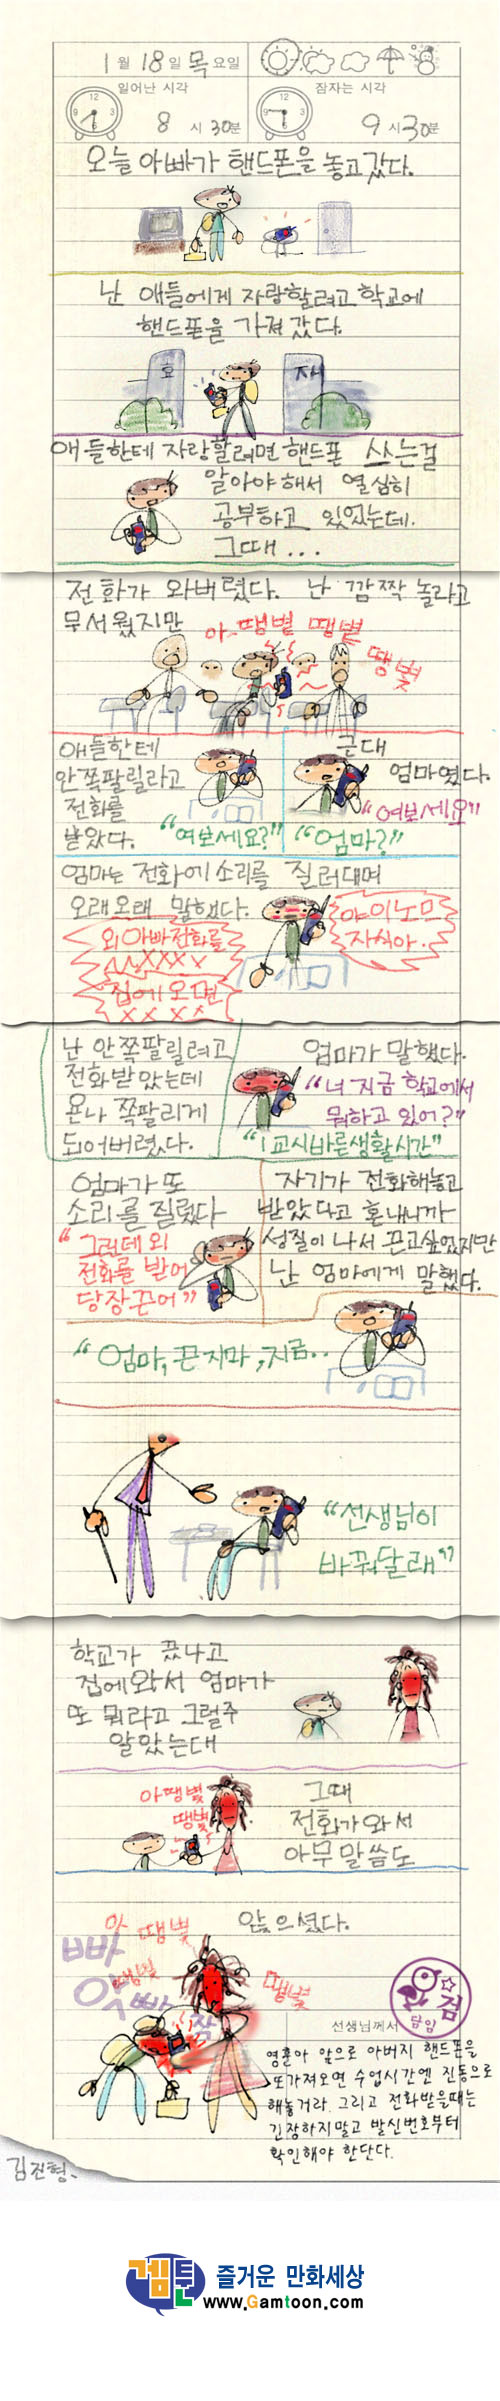 1월 18일 목요일
일어난 시각
잠자는 시각
8시 30분
9시 30분
오늘 아빠가 핸드폰을 놓고 갔다.
난 애들에게 자랑할려고 학교에
핸드폰을 가져 갔다.
효
자
애들한테 자랑할려면 핸드폰 쓰는걸
알아야해서 열심히
공부하고 있었는데.
그때...
전화가 와버렸다. 난 깜짝 놀라고
무서웠지만
아 땡볕 땡볕
땡볕
애들한테
안쪽팔릴라고
전화를
받았다.
"여보세요?"
근대
엄마였다.
"여보세요"
"엄마?"
엄마는 전화에 소리를 질러대며
오래오래 말했다.
야 이노므
자식아.
외 아빠 전화를
XXXX
집에 오면
XX XX
난 안쪽팔릴려고
전화받았는데
욘나 쪽팔리게
되어버렸다.
엄마가 말했다.
"너 지금 학교에서
뭐하고 있어?"
"1교시바른생활시간"
엄마가 또
소리를 질렀다
"그런데 외
전화를 받어
당장끈어"
자기가 전화해놓고
받았다고 혼내니까
성질이 나서 끈고싶었지만
난 엄마에게 말했다.
"엄마, 끈지마, 지금..
"선생님이
바꿔달래"
학교가 끘나고
집에와서 엄마가
또 뭐라고 그럴주
알았는대
아땡볕
땡볕
그때
전화가와서
아무 말씀도
않으셨다.
아 땡볕
빠
땡볕
땡볕
악
빠
작
검
담임
선생님께서
영훈아 앞으로 아버지 핸드폰을
또가져오면 수업시간엔 진동으로
해놓거라. 그리고 전화받을때는
긴장하지말고 발신번호부터
확인해야 한단다.
김진형.
겜툰 즐거운 만화세상
www.Gamtoon.com